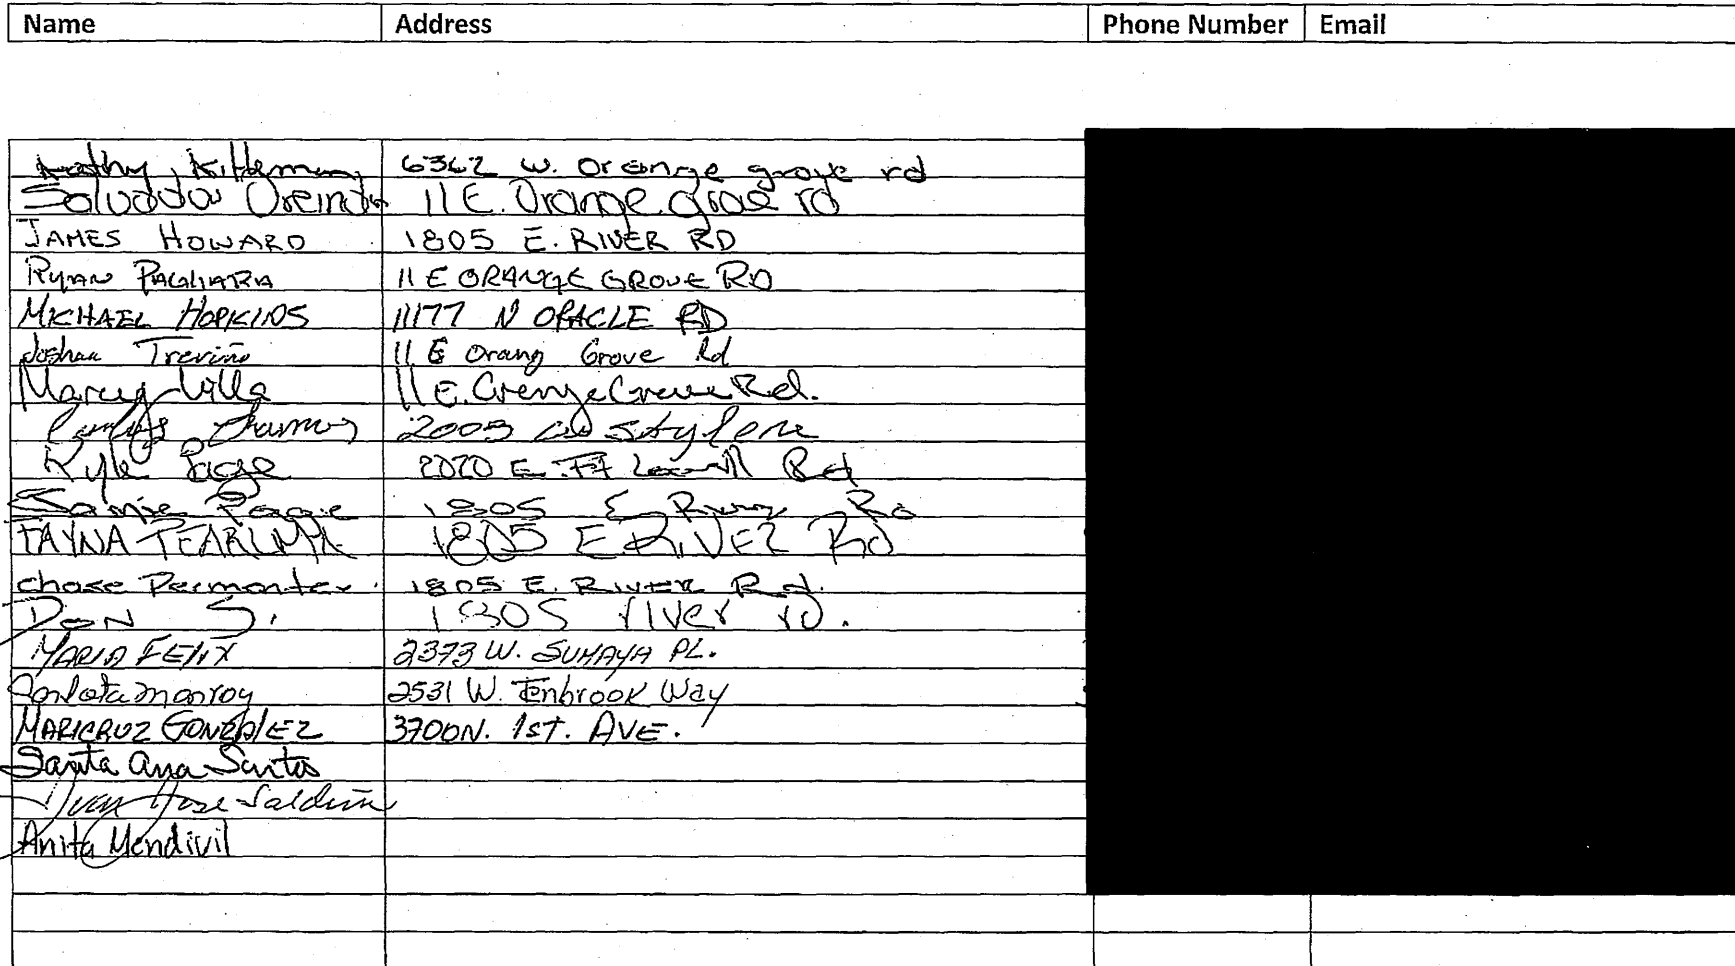 Name Address Phone Number Email
Kathy Kitteman 6362 w. orange grove rd
Salvador 11 E. Orange groe rd
JAMES HOWARD 1805 E. RIVER RD
RYAN PAGLIARA 11 E ORANGE GROVE RD
MICHAEL HOPKINS 11177 N ORACLE RD
Joshua Treviño 11 E Orang Grove Rd
Marcy Villa 11 E. Orange Grove Rd.
2005 W
Kyle Page 2020 E. Ft Lowell Rd
1805 E River Rd
TAYNA 1805 E RIVER Rd
chase 1805 E. RIVER Rd.
DON S. 1805 river rd.
MARIA FELIX 2373 W. SUMAYA PL.
Carlota monroy 2531 W. Tenbrook Way
MARICRUZ GONZALEZ 3700 N. 1st. AVE.
Santa Ana Santos
Juan Jose
Anita Mendivil